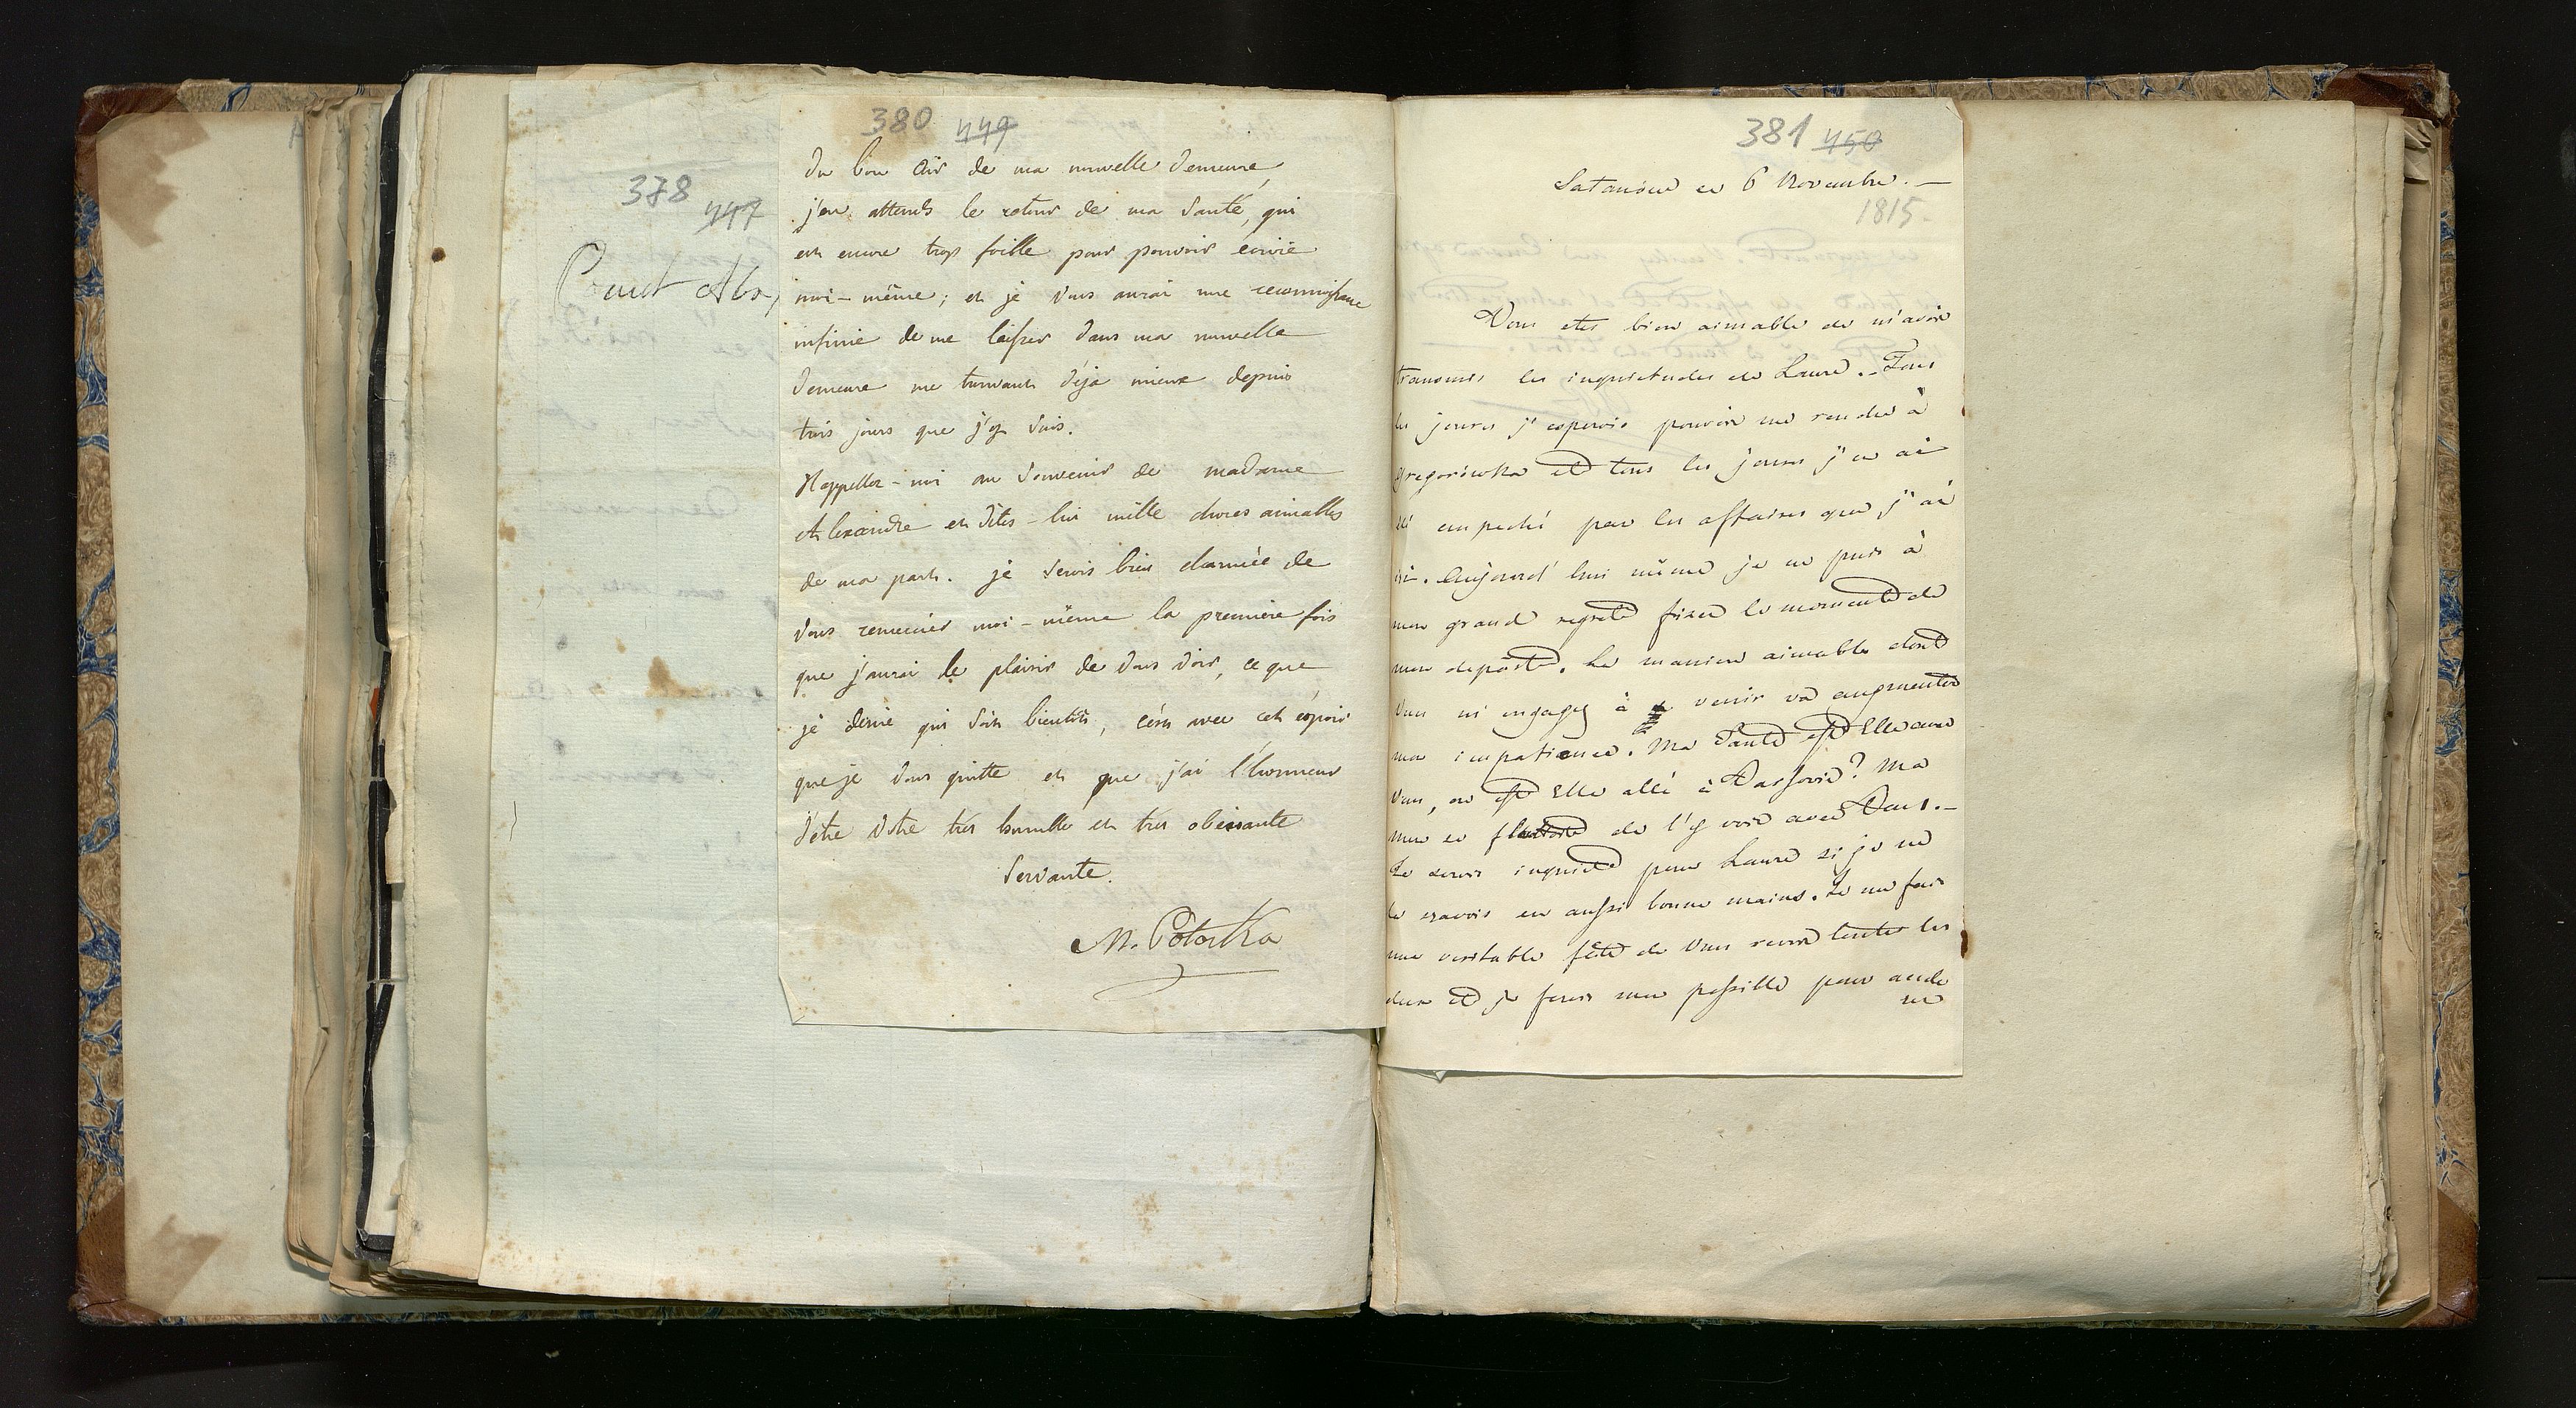 378 447
Comt Alex
380 449
du bon air de ma nouvelle demeure,
j'en attends le retour de ma santé, qui
est encore trop foible pour pouvoir écrire
moi-même; et je vous aurai une reconnoissance
infinie de me laisser dans ma nouvelle
demeure me trouvant déja mieux depuis
trois jours que j'y suis.
Rappellez-moi au souvenir de madame
Alexandre et dites-lui mille choses aimables
de ma part. je serois bien charmée de
vous remercier moi-même la premiere fois
que j'aurai le plaisir de vous voir, ce que
je desire qui soit bientôt, c'est avec cet éspoir
que je vous quitte et que j'ai l'honneur
d'être votre très humble et très obeissante
servante.
M. Potocka
381 450
Satanów ce 6 Novembre. —
1815.
Vous etes bien aimable de m'avoir
transmis les inquietudes de Laure. Tous
les jours j'esperois pouvoir me rendre à
Gregorówka et tous les jours j'en ai
été empeché par les affaires que j'ai
ici. Aujourd'hui même je ne puis à
mon grand regret fixer le moment de
mon depart. La maniere aimable dont
Vous m'engagez à venir va augmenter
mon impatience. Ma Tante est Elle avec
Vous, ou est Elle allé à Varsovie? Ma
mere se flattoit de l'y voir avec Vous. —
Je serois inquiet pour Laure si je ne
la savois en aussi bonne mains. Je me fais
une veritable fête de Vous revoir toutes les
deux et je ferai mon possible pour accele
rer